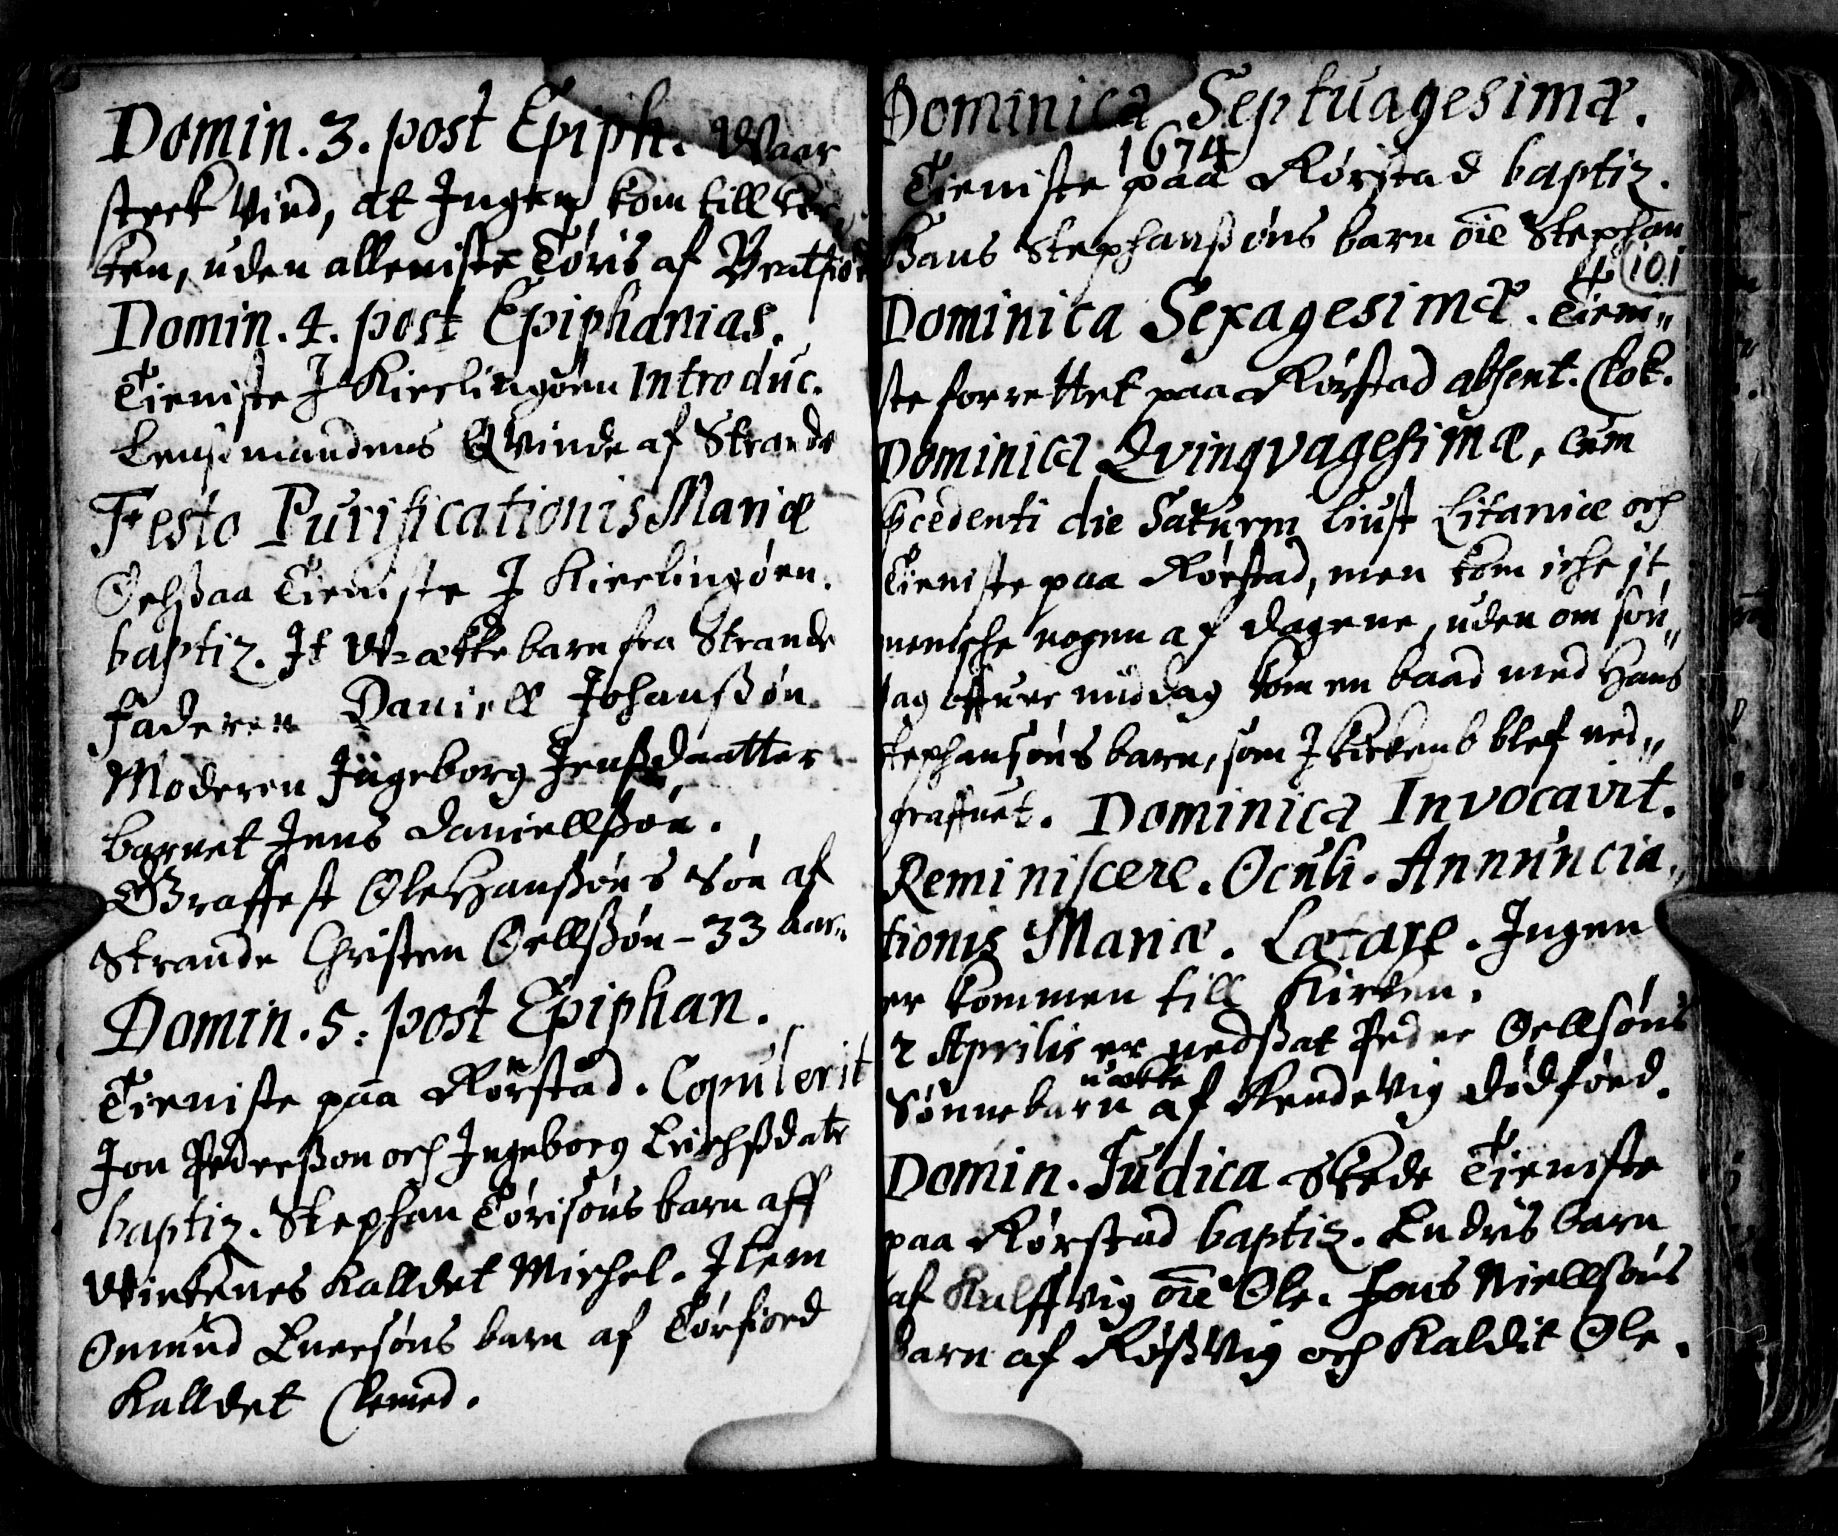 Domin. 3. post Epiph. Waar
sterk Vind, at Ingen kom till Kir„
ken, uden alleniste Tøris af Bratfiord
Domin. 4. post Epiphanias.
Tieniste J Kierlingøen Introduc.
Lensmandens Qvinde af Strande
Festo Purificationis Mariæ
Ochsaa Tieniste J Kierlingøen.
baptiz. It Wrække barn fra Strande
faderen Daniell Johanßøn
Moderen Ingeborg Jensdaatter
barnet Jens Daniellßøn.
Graffest Ole Hanßøns Søn af
Strande Christen Oellßøn - 33 aar„
Domin. 5. post Epiphan.
Tieniste paa Rørstad. Copulerit
Jon Pederßon och Ingeborg Erichßdatr
baptiz. Stephan Tørisøns barn aff
Winkenes kalldet Michel. Item
Onmund Enersøns barn af Tørfiord
kalldet Clemed.
Dominica Septuagesimæ.
1674
Tieniste paa Rørstad baptiz.
Hans Stephanßøns barn öie Stephan
101
Dominica Sexagesimæ. Tieni„
ste forrettet paa Rørstad absent. Clok.
Dominica Qvinqvagesimæ, cum
pcedenti die Saturni liust Litaniæ och
Tieniste paa Rørstad, men kom iche it
menische nogen af dagene, uden om søn„
dag effter middag kom en baad med Hans
Stephansøns barn, som J kirken b blef ned„
graffuet. Dominica Invocavit.
Reminiscere. Oculi. Annuncia„
tionis Mariæ. Lætare. Ingen
er kommen till Kirken.
2 Aprilis er nedßat Peder Oellsøns
uækte
Sønnebarn af Rendevig dødføed.
Domin. Judica Skede Tieniste
paa Rørstad baptiz. Endris barn
af Kulffvig öie Ole. Jens Niellsøns
barn af Røßvig och kaldit Ole.